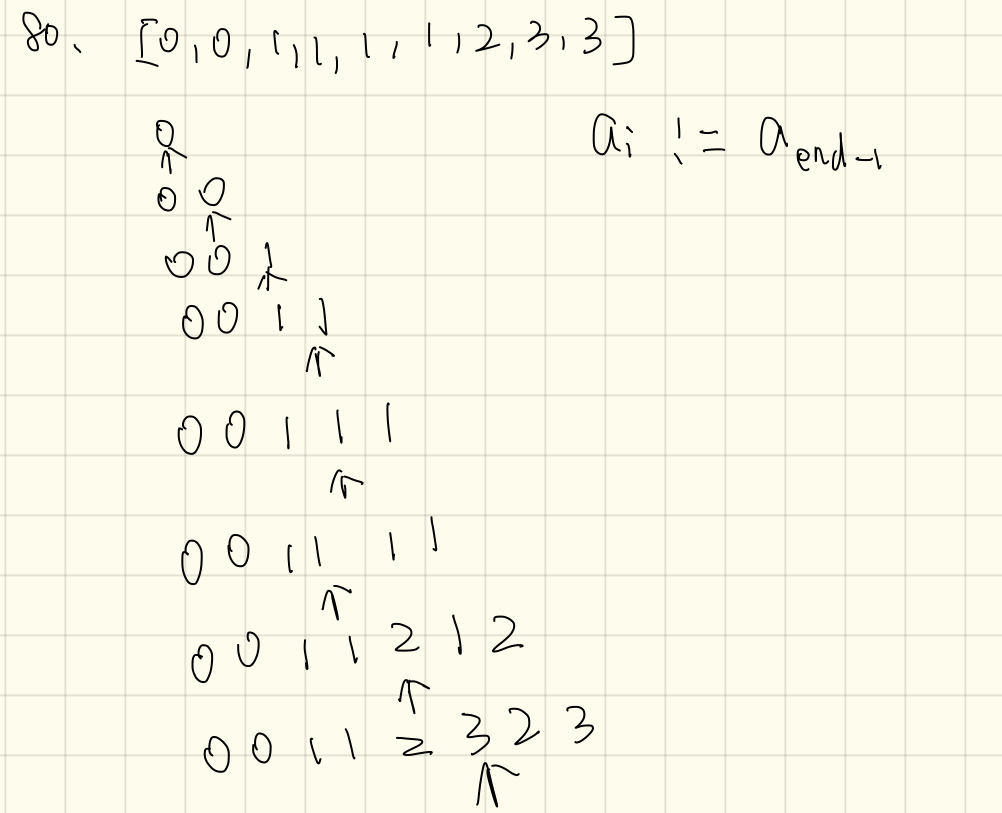 80. [0,0,1,1,1,1,2,3,3]
0
↑
ai != aend-1
0 0
↑
0 0 1
↑
0 0 1 1
↑
0 0 1 1 1
↑
0 0 1 1 1 1
↑
0 0 1 1 2 1 2
↑
0 0 1 1 2 3 2 3
↑